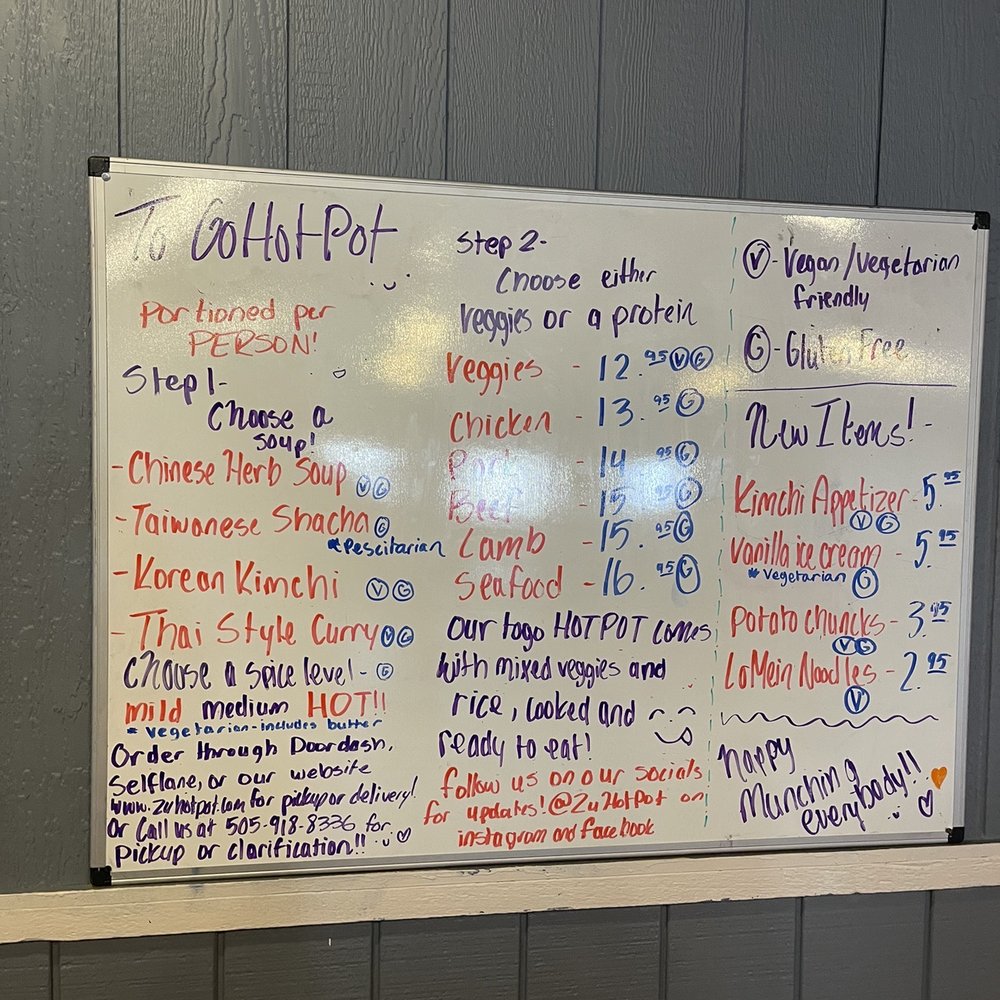 To GoHotPot
Portioned per
PERSON!
Step 1-
Choose a
soup!
-Chinese Herb Soup V G
-Taiwanese Shacha G
*Pescitarian
-Korean Kimchi V G
-Thai Style Curry V G
Choose a spice level- G
mild medium HOT!!
* vegetarian-includes butter
Order through Doordash,
Selflane, or our website
www.zuhotpot.com for pickup or delivery!
Or Call us at 505-918-8336 for
pickup or clarification!!
Step 2-
Choose either
veggies or a protein
Veggies - 12.95 V G
Chicken - 13.95 G
Pork - 14.95 G
Beef - 15.95 G
Lamb - 15.95 G
Seafood - 16.95 G
Our togo HOTPOT comes
with mixed veggies and
rice, cooked and
ready to eat!
follow us on our socials
for updates! @ZuHotPot on
instagram and facebook
V - Vegan/vegetarian
friendly
G - Gluten Free
New Items!-
Kimchi Appetizer - 5.95
V G
Vanilla ice cream - 5.95
* vegetarian G
Potato chuncks - 3.95
V G
LoMein Noodles - 2.95
V
Happy
Munching
everybody!!